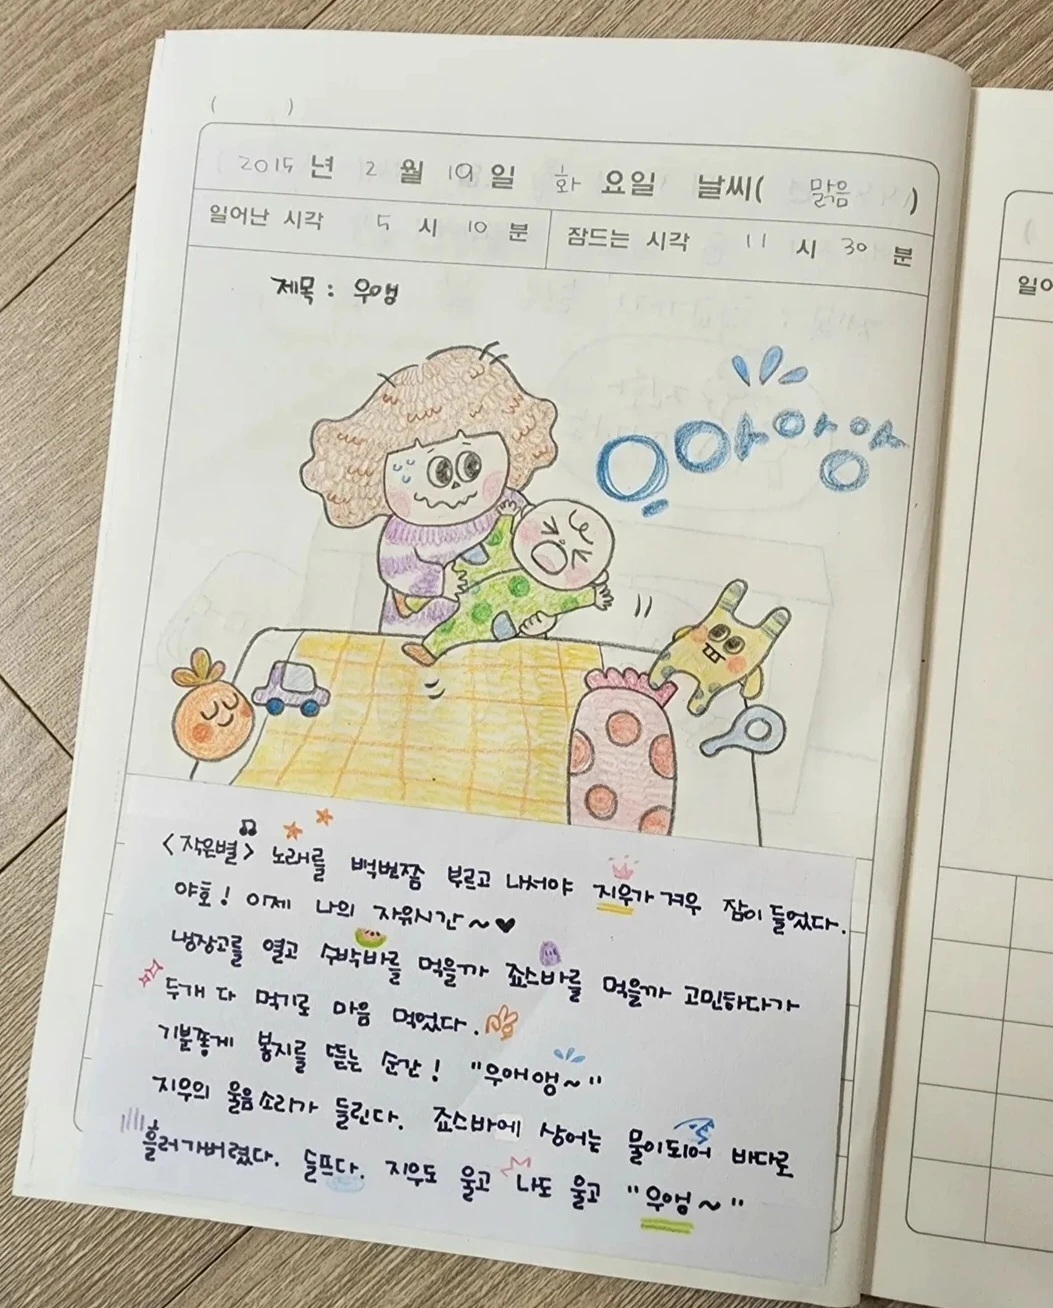 ( )
2015 년 2 월 19 일 화 요일 날씨( 맑음 )
일어난 시각 5 시 10 분 잠드는 시각 11 시 30 분
제목 : 우앵
으아아앙
<작은별> 노래를 백번쯤 부르고 나서야 지우가 겨우 잠이 들었다.
야호! 이제 나의 자유시간~♥
냉장고를 열고 수박바를 먹을까 죠스바를 먹을까 고민하다가
두개 다 먹기로 마음 먹었다.
기분좋게 봉지를 뜯는 순간! "우애앵~"
지우의 울음소리가 들린다. 죠스바에 상어는 물이되어 바다로
흘러가버렸다. 슬프다. 지우도 울고 나도 울고 "우앵~"